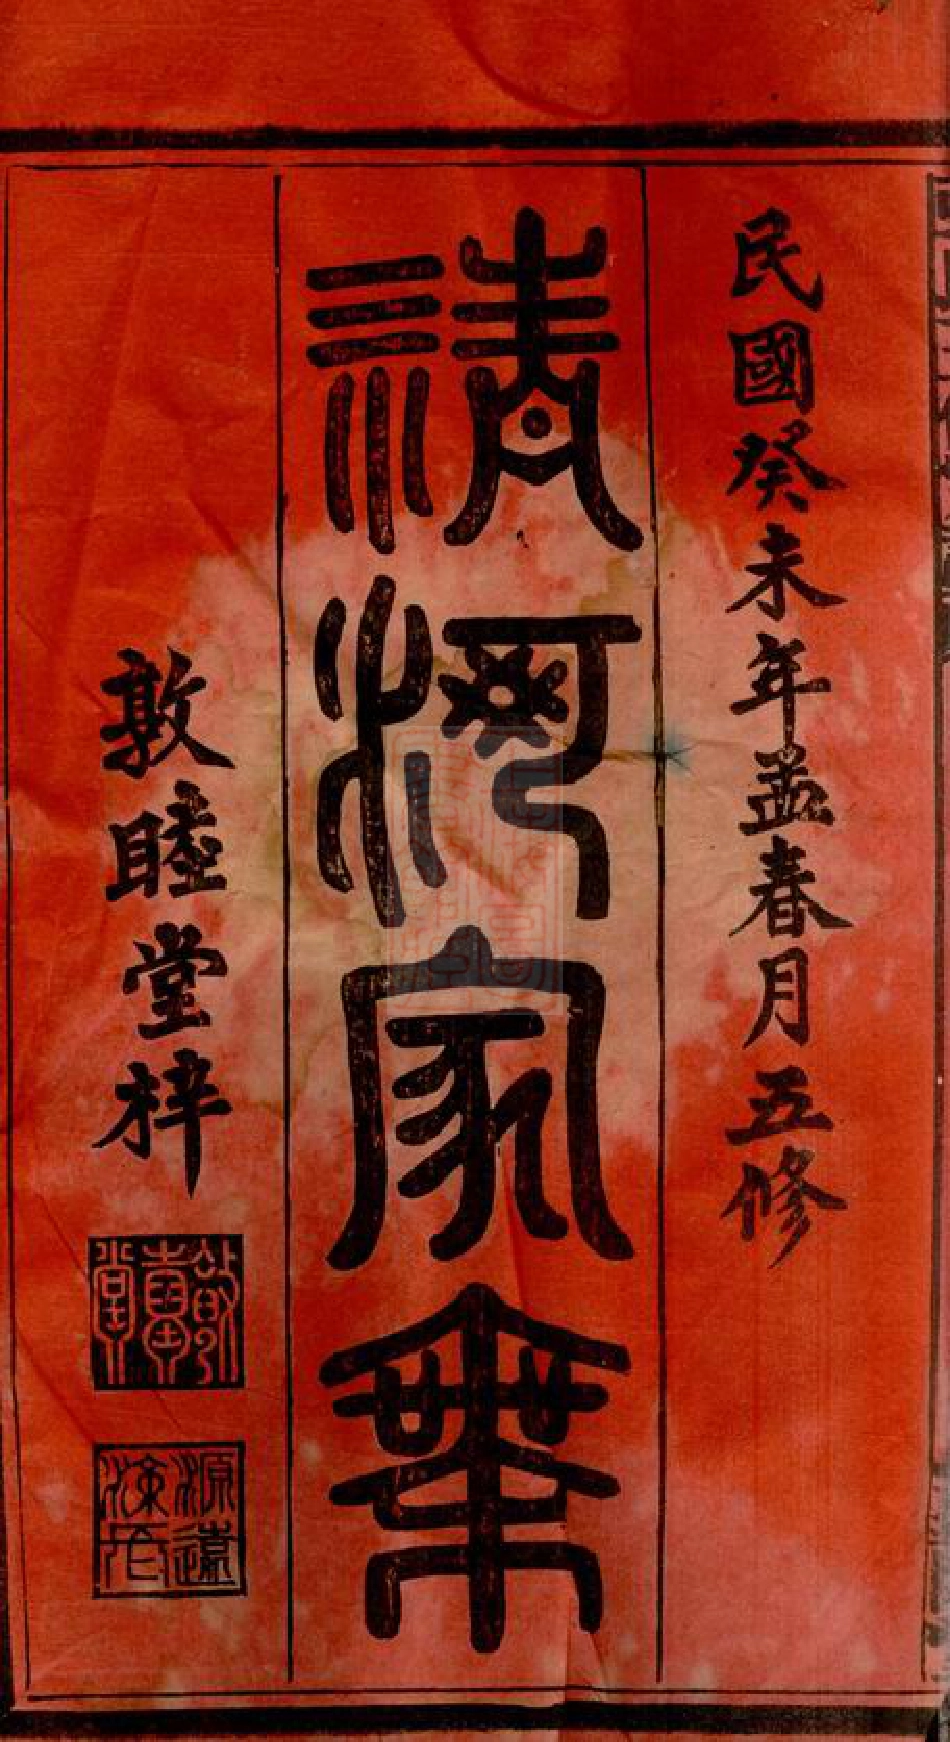 民國癸未年孟春月五修
清河家乘
敦睦堂梓
敦睦堂
源遠流長